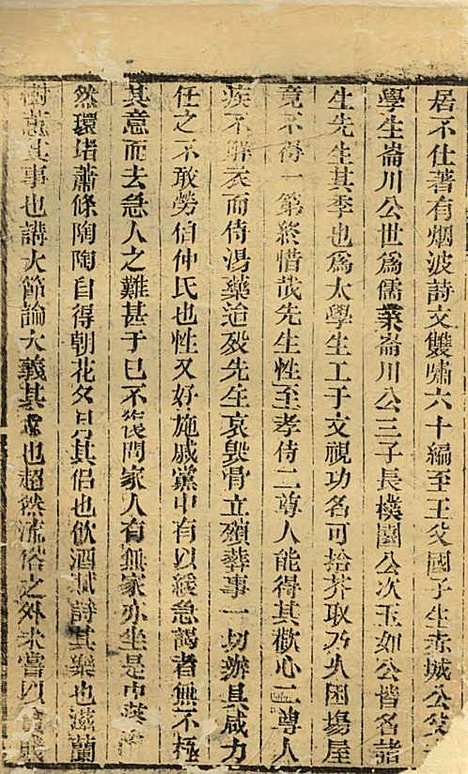 居不仕著有烟波詩文雙嘯六十編至王父國子生赤城公父
學生崙川公世爲儒業崙川公三子長樸園公次玉如公皆名諸
生先生其季也爲太學生工于文視功名可拾芥取乃久困塲屋
竟不得一第終惜哉先生性至孝侍二尊人能得其歡心二尊人
疾不解衣而侍湯藥迨歿先生哀毀骨立殯葬事一切辦具咸力
任之不敢勞伯仲氏也性又好施戚黨中有以緩急謁者無不極
其意而去急人之難甚于已不復問家人有無家亦坐是中
然環堵蕭條陶陶自得朝花夕月其侶也飲酒賦詩其樂也滋蘭
樹蕙其事也講大節論大義其也超然流俗之外未嘗以